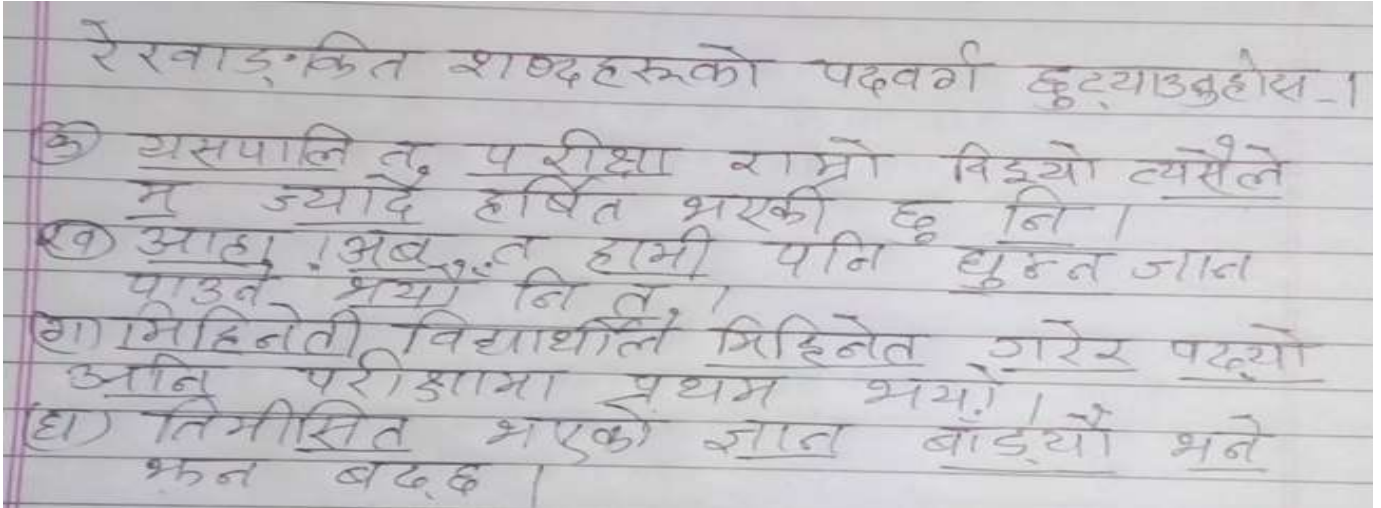 रेखाङ्कित शब्दहरूको पदवर्ग छुट्याउनुहोस् ।
(क) यसपालि त परीक्षा राम्रो विइयो त्यसैले
म ज्यादै हर्षित भएकी छु नि ।
(ख) आहा ! अब त हामी पनि घुम्न जान
पाउने भयौं नि त ।
(ग) मिहिनेती विद्यार्थीले मिहिनेत गरेर पढ्यो
अनि परीक्षामा प्रथम भयो ।
(घ) तिमीसित भएको ज्ञान बाँड्यौ भने
झन बढ्छ ।